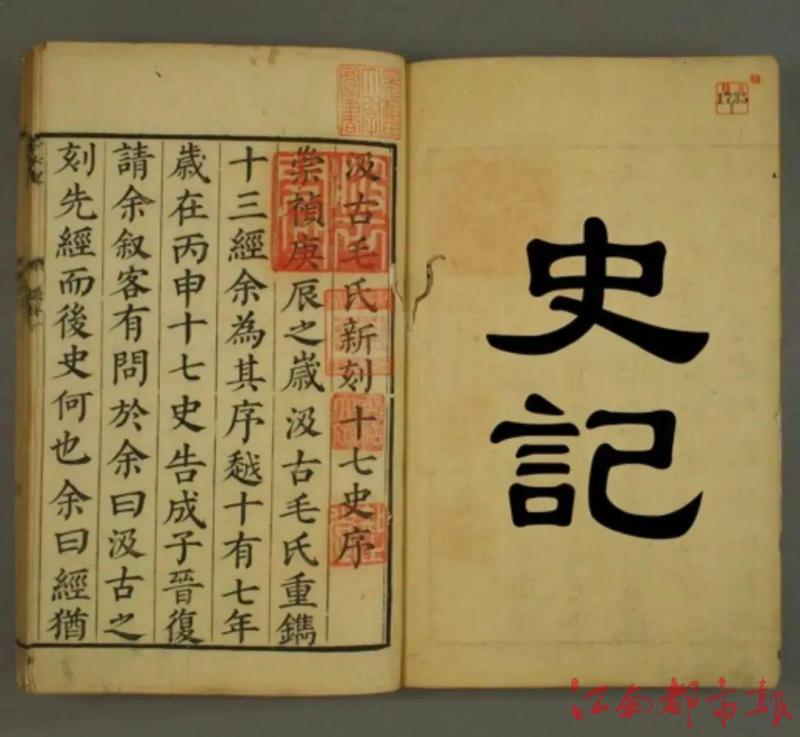 史記
汲古毛氏新刻十七史序
崇禎庚辰之歲汲古毛氏重鐫
十三經余為其序越十有七年
歲在丙申十七史告成子晉復
請余叙客有問於余曰汲古之
刻先經而後史何也余曰經猶
1735
江南都市報